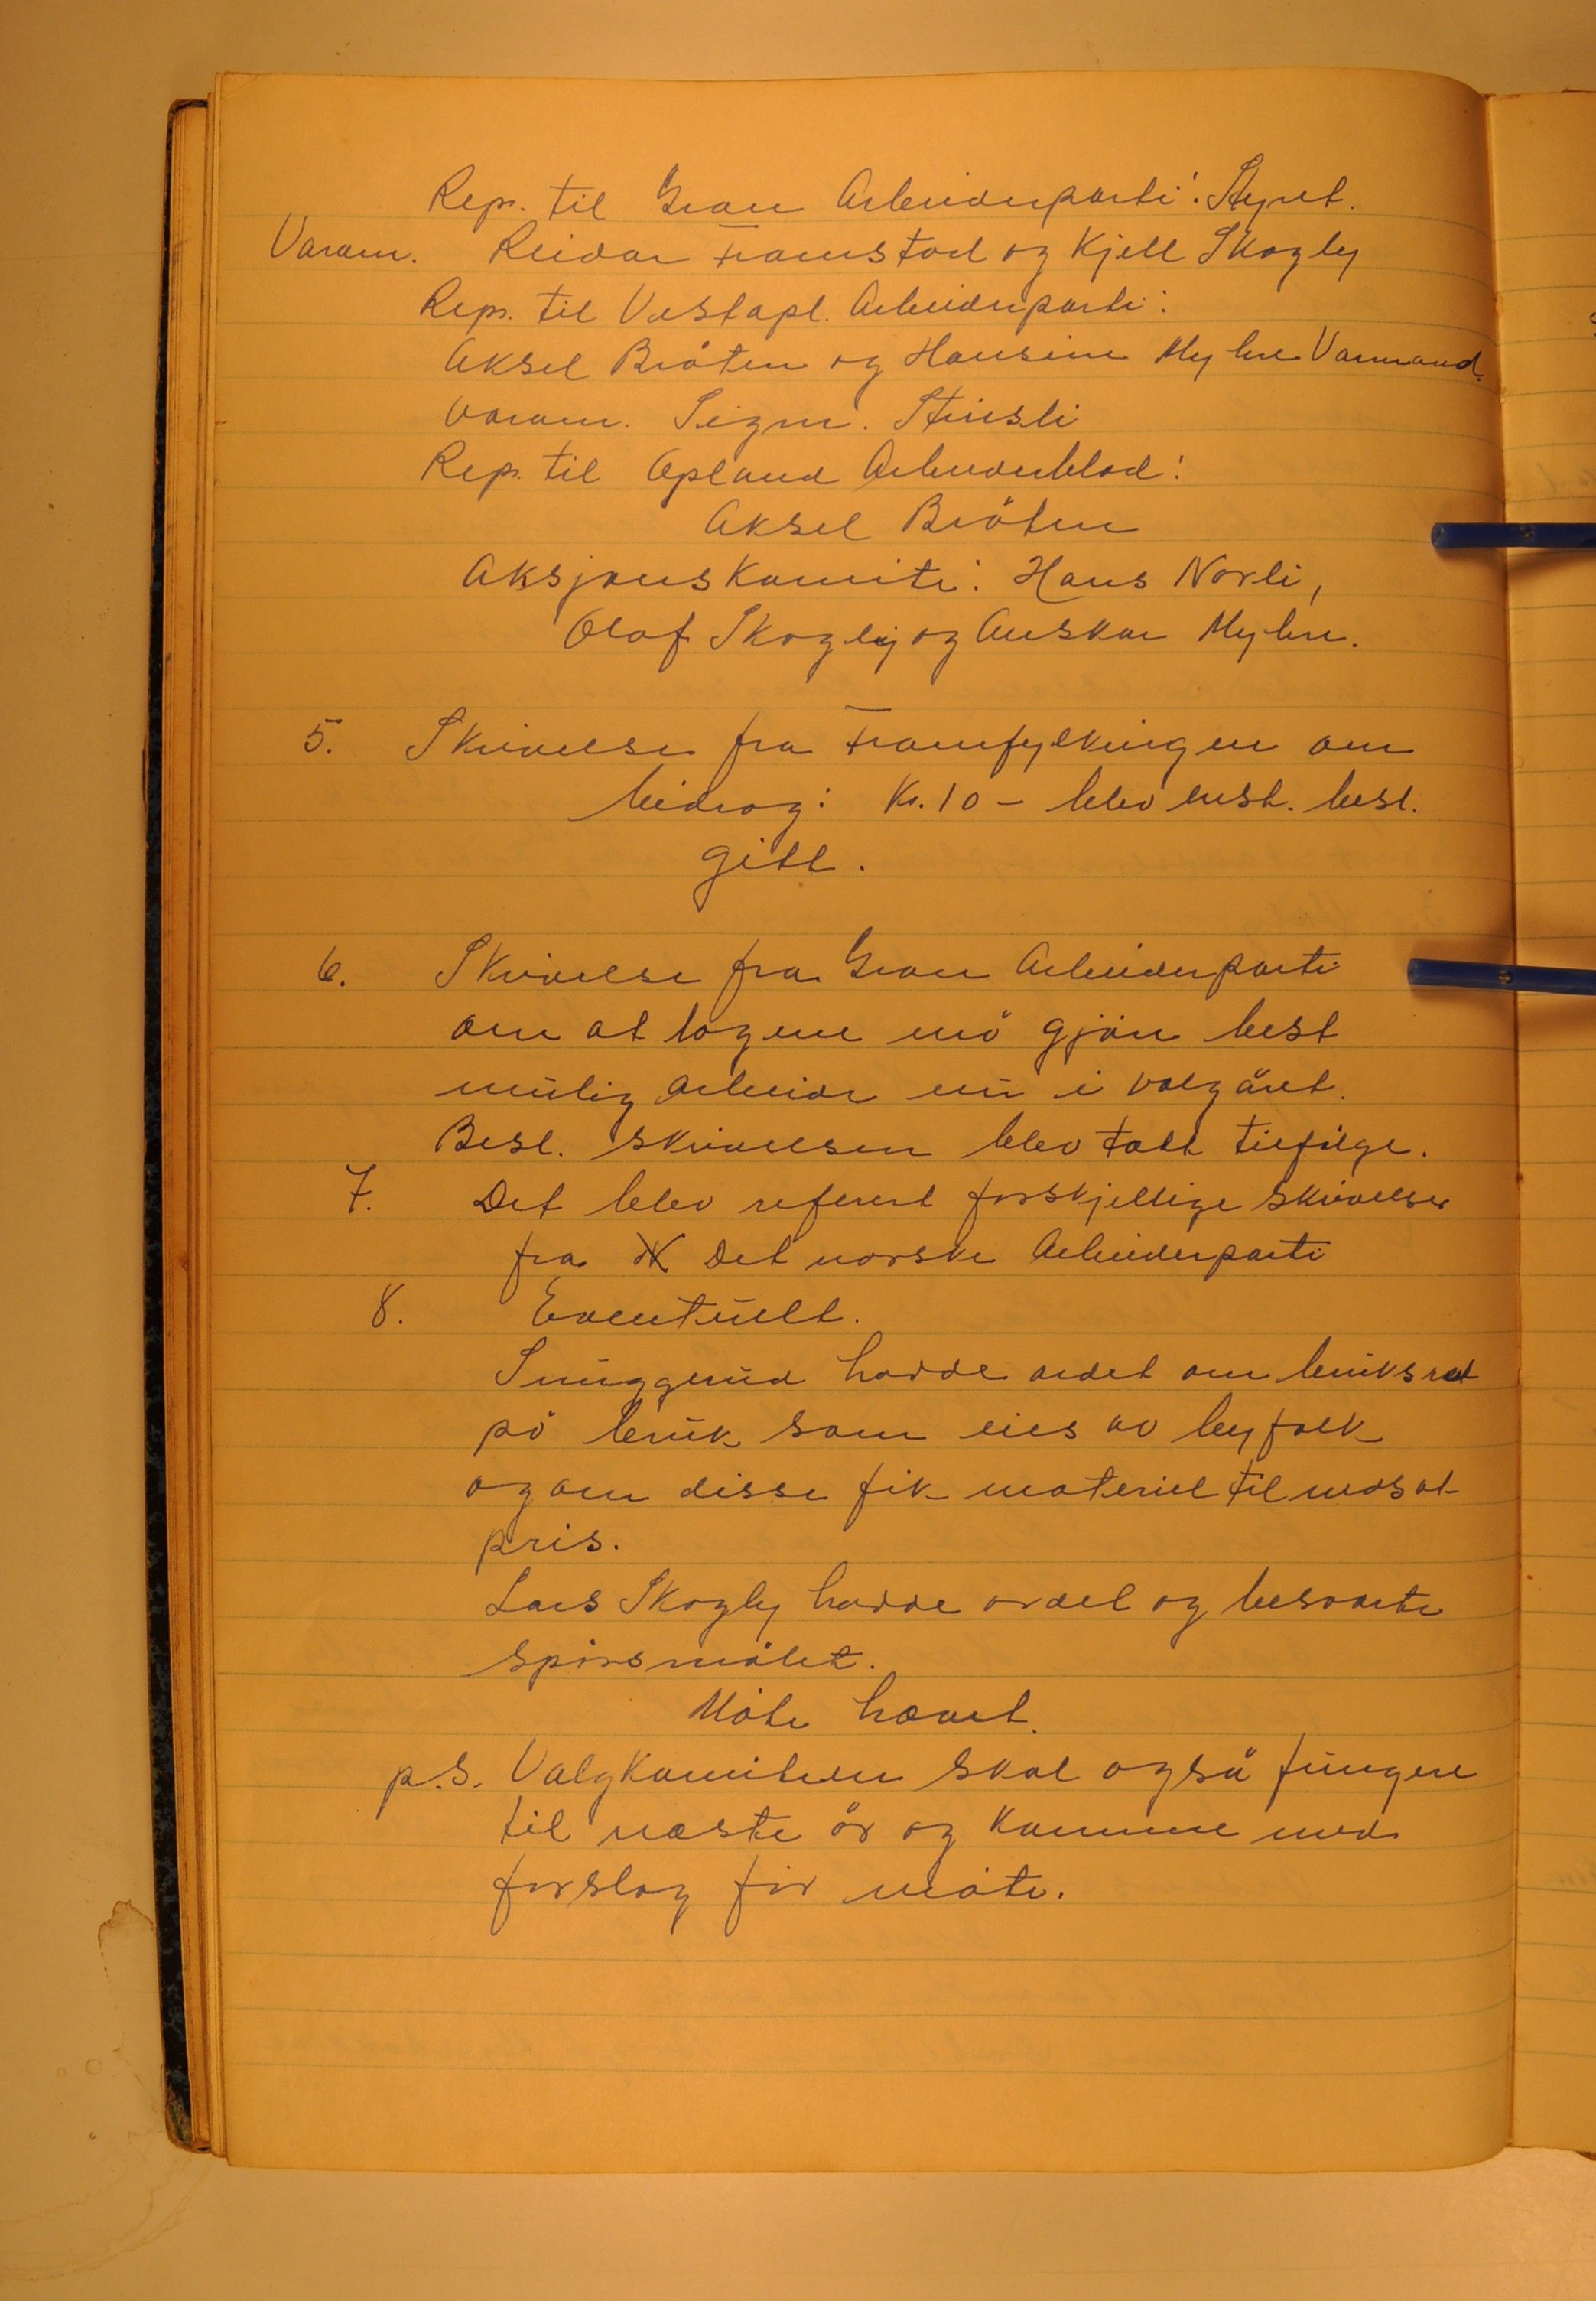 Rep. til Gran Arbeiderparti: Styret.
Varam. Reidar Framstad og Kjell Skogly
Rep. til Vestopl. Arbeiderparti:
Aksel Bråten og Hansine Myhre Varmand.
Varam. Sigm. Stiesli
Rep. til Opland Arbeiderblad:
Aksel Bråten
Aksjonskomite: Hans Norli,
Olaf Skogly og Anskar Myhre.
5. Skrivelse fra Framfylkingen om
bidrag: Kr. 10 – blev enst. besl.
gitt.
6. Skrivelse fra Gran Arbeiderparti
om at lagene må gjöre best
mulig arbeide nu i valgåret.
Besl. skrivelsen blev tatt tilfölge.
7. Det blev referert forskjellige skrivelser
fra Det norske Arbeiderparti
8. Eventuelt.
Smuggerud hadde ordet om bruksret
på bruk som eies av byfolk
og om disse fik materiel til nedsat
pris.
Lars Skogly hadde ordet og besvarte
spörsmålet.
Möte hævet.
p.s. Valgkomiteen skal også fungere
til næste år og komme med
forslag för möte.